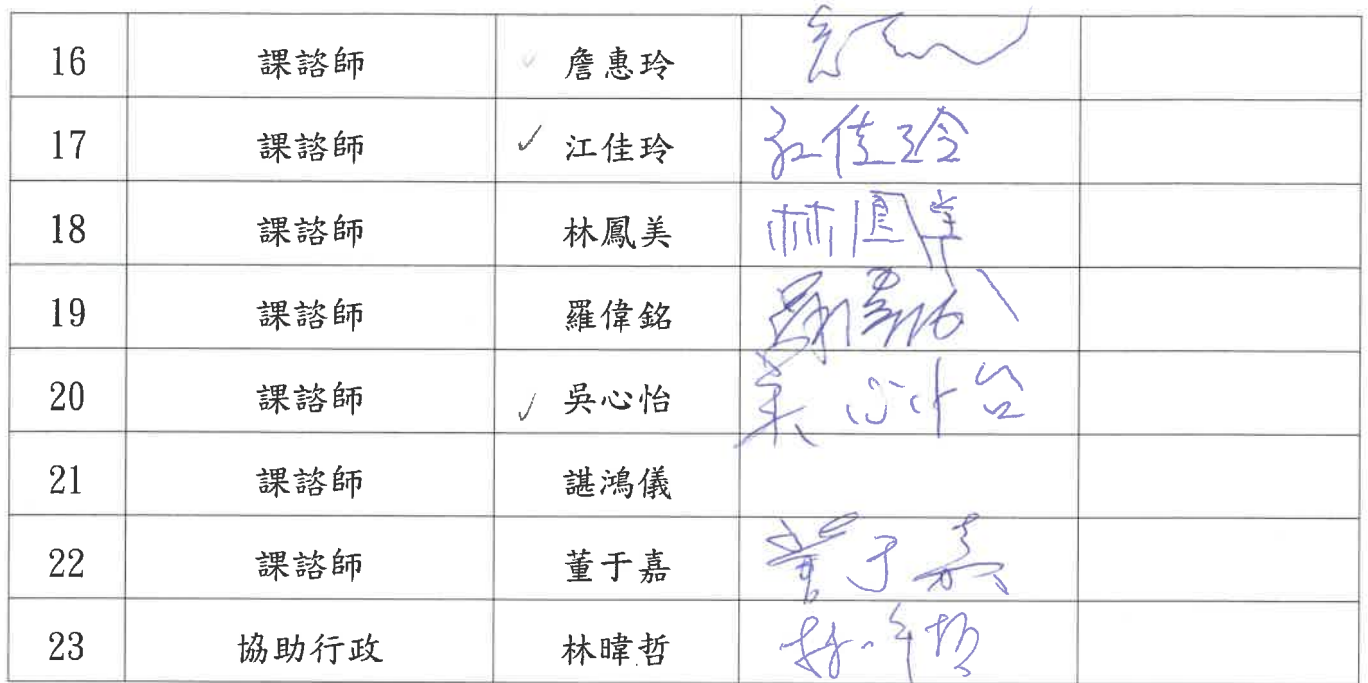 16 課諮師 詹惠玲
17 課諮師 ✓ 江佳玲 江佳玲
18 課諮師 林鳳美 林鳳美
19 課諮師 羅偉銘 羅偉銘
20 課諮師 ✓ 吳心怡 吳心怡
21 課諮師 諶鴻儀
22 課諮師 董于嘉 董于嘉
23 協助行政 林暐哲